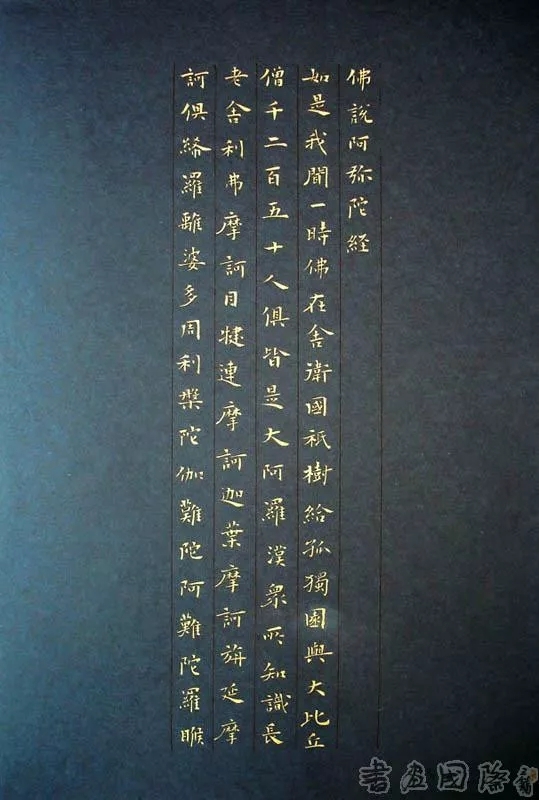 佛說阿弥陀経
如是我聞一時佛在舍衛國祇樹給孤獨園與大比丘
僧千二百五十人俱皆是大阿羅漢衆所知識長
老舍利弗摩訶目揵連摩訶迦葉摩訶旃延摩
訶俱絺羅離婆多周利槃陀伽難陀阿難陀羅睺
書画國際